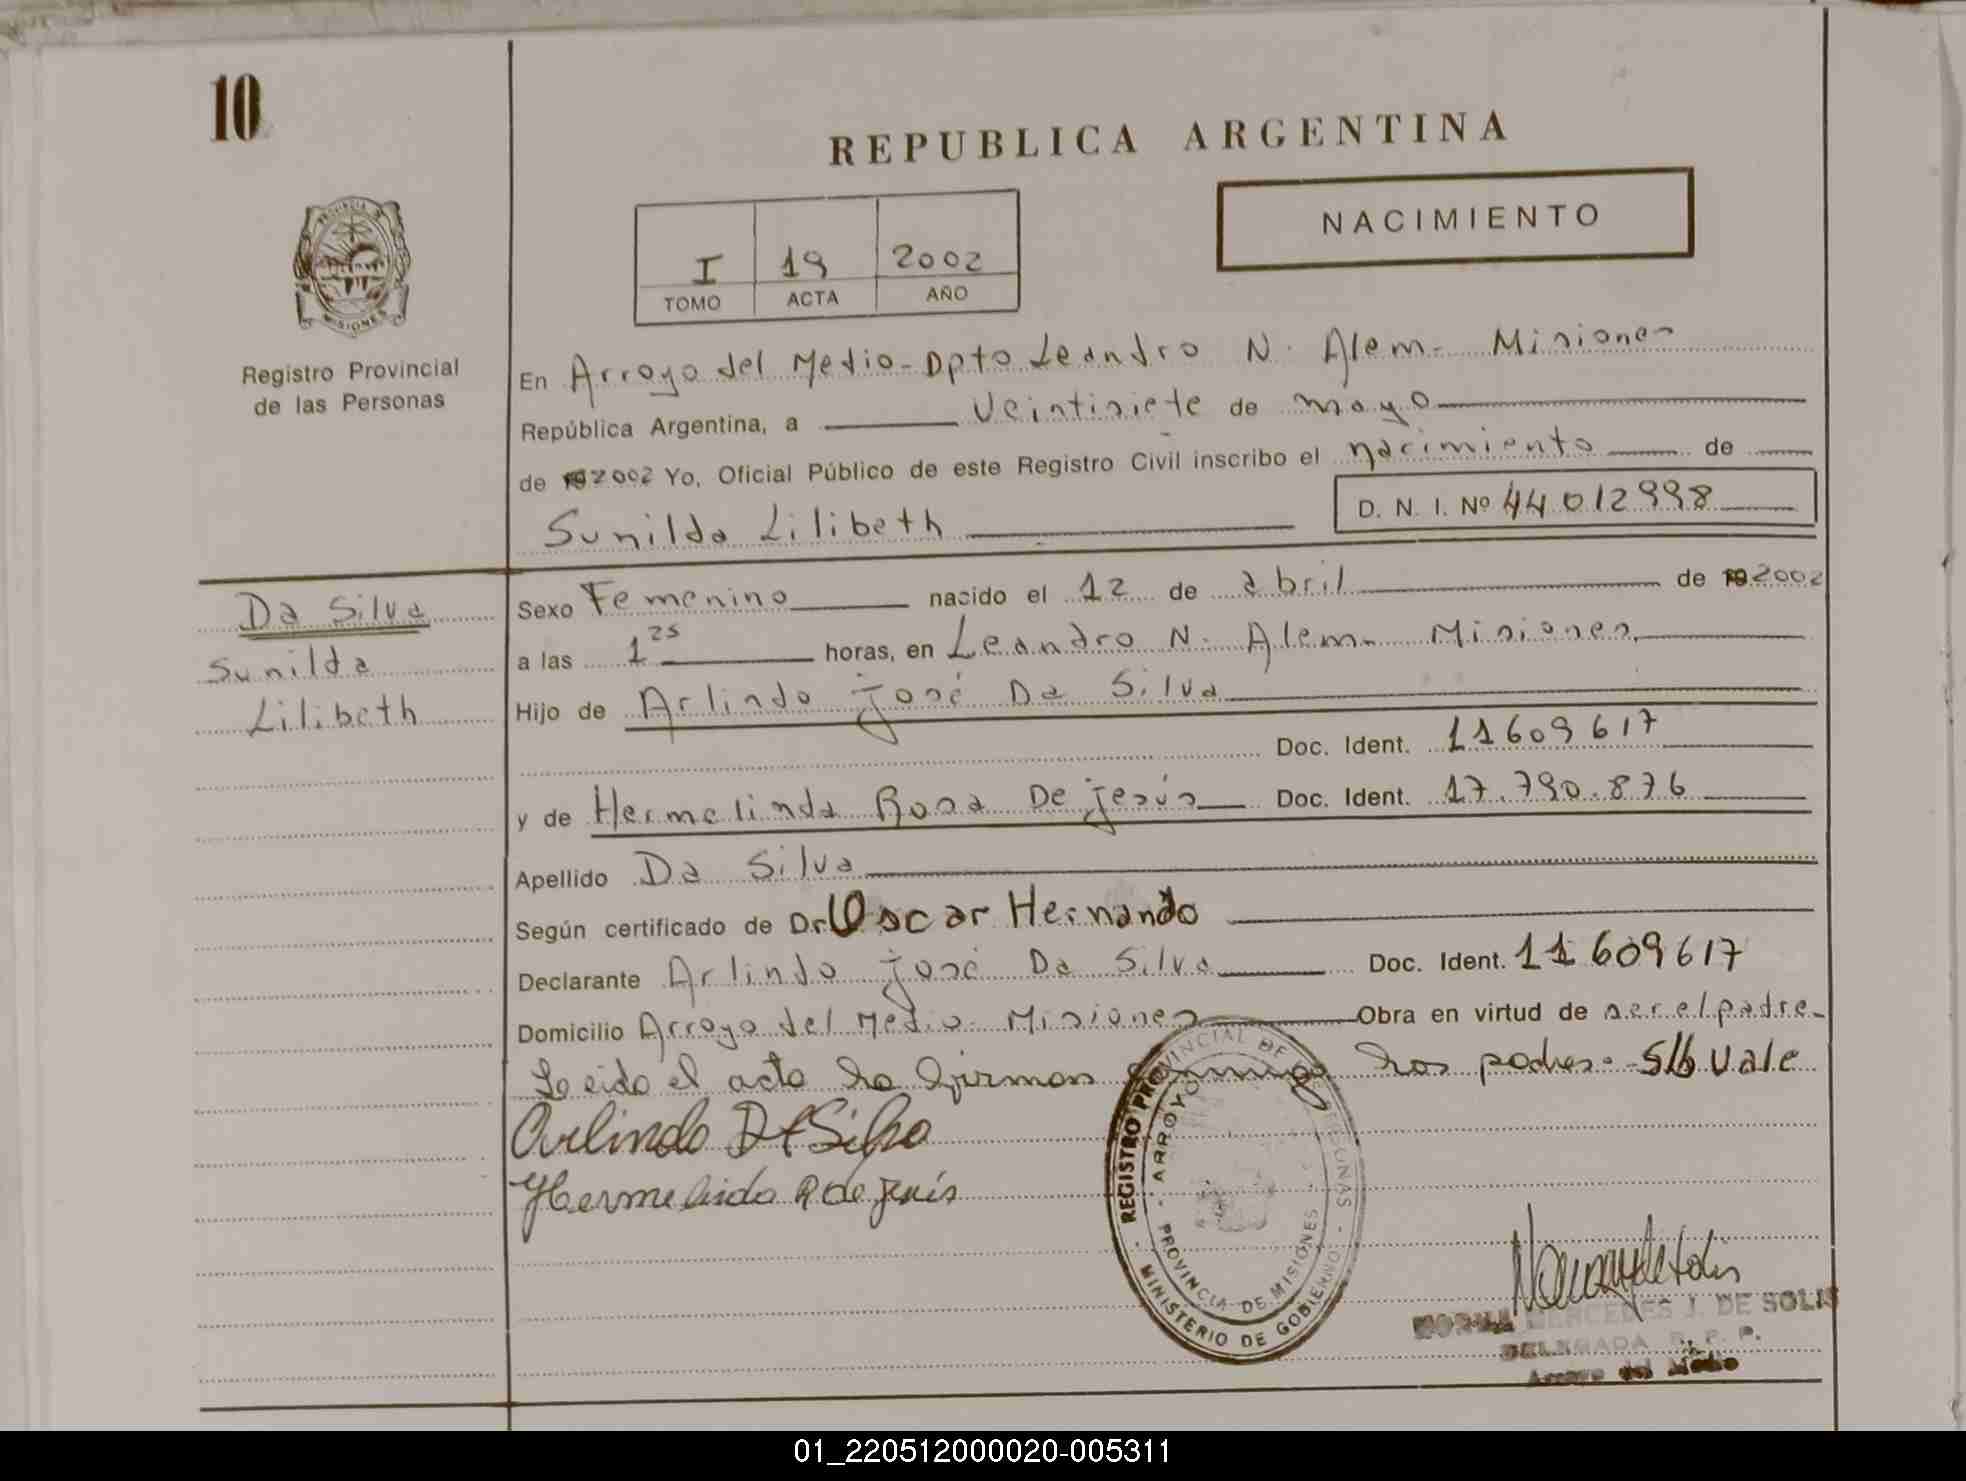 10
REPUBLICA ARGENTINA
NACIMIENTO
PROVINCIA DE
MISIONES
Registro Provincial
de las Personas
I 19 2002
TOMO ACTA AÑO
En Arroyo del Medio - Dpto Leandro N. Alem - Misiones
República Argentina, a veintisiete de mayo
de 192002 Yo, Oficial Público de este Registro Civil inscribo el nacimiento de
Sunilda Lilibeth D. N. I. Nº 44012998
Da Silva
Sunilda
Lilibeth
Sexo Femenino nacido el 12 de abril de 192002
a las 1 25 horas, en Leandro N. Alem - Misiones
Hijo de Arlindo José Da Silva
Doc. Ident. 11609617
y de Hermelinda Rosa De Jesús Doc. Ident. 17.790.876
Apellido Da Silva
Según certificado de Dr. Oscar Hernando
Declarante Arlindo José Da Silva Doc. Ident. 11609617
Domicilio Arroyo del Medio - Misiones Obra en virtud de ser el padre -
Leido el acta la firman conmigo los padres - S/b Vale
Arlindo Da Silva
Hermelinda R de Jesús
REGISTRO PROVINCIAL DE LAS PERSONAS - MINISTERIO DE GOBIERNO -
- ARROYO
PROVINCIA DE MISIONES -
NORMA MERCEDES J. DE SOLIS
DELEGADA R. P. P.
Arroyo del Medio
01_220512000020-005311